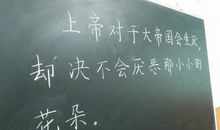 上帝对于大帝国会生厌，
却决不会厌恶那小小的
花朵。